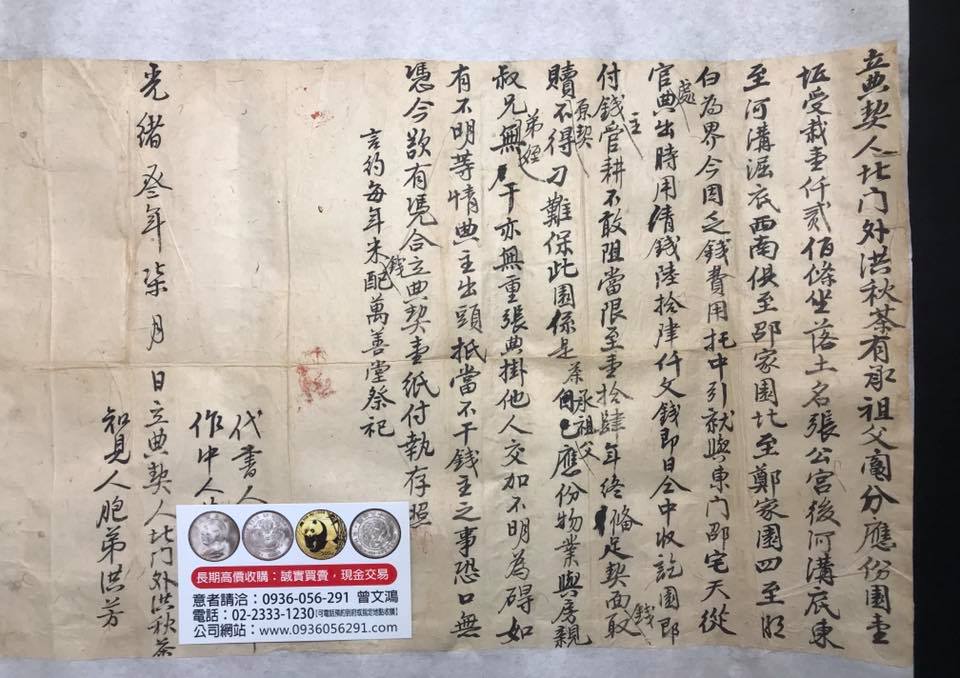 立典契人北門外洪秋茶有承祖父鬮分應份園壹
坵受栽壹仟貳佰條坐落土名張公宮後河溝底東
至河溝堀底西南俱至邵家園北至鄭家園四至明
白為界今因乏錢費用托中引就與東門邵宅天從
官處典出時用清錢陸拾肆仟文錢即日仝中收訖園即
付錢主管耕不敢阻當限至壹拾肆年終備足契面取錢
贖原契不得刁難保此園係是茶承祖父應份物業與房親
叔兄弟姪無干亦無重張典掛他人交加不明為碍如
有不明等情典主出頭抵當不干錢主之事恐口無
憑今欲有憑合立典契壹紙付執存照
言約每年米錢配萬善堂祭祀
代書人
作中人
光緒叄年柒月 日立典契人北門外洪秋茶
知見人胞弟洪芳
長期高價收購：誠實買賣，現金交易
意者請洽：0936-056-291 曾文鴻
電話：02-2333-1230
公司網站：www.0936056291.com